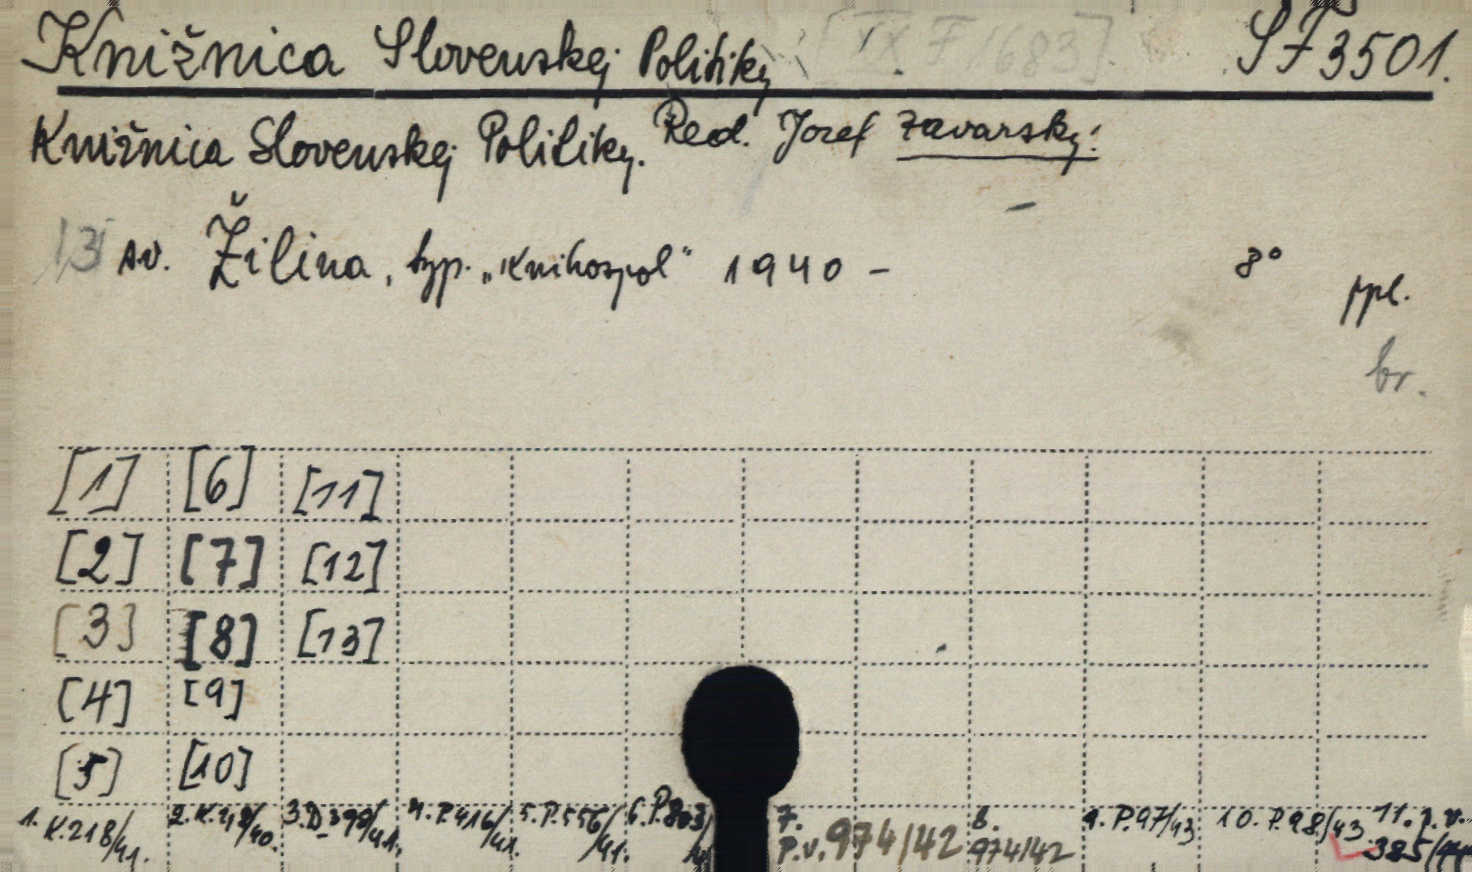 Knižnica Slovenskej Politiky [IX F 1683] SF 3501.
Knižnica Slovenskej Politiky. Red. Jozef Zavarský:
13 sv. Žilina, typ. „Knihospol" 1940 - 8°
ppl.
br.
[1] [6] [11]
[2] [7] [12]
[3] [8] [13]
[4] [9]
[5] [10]
1. K.218/41. 2. K.48/40. 3. D.399/41. 4. P.416/41. 5. P.556/41. 6. P.803/ 7. P.v. 974/42 8. 974/42 9. P.97/43 10. P.98/43 11. p.v. 385/